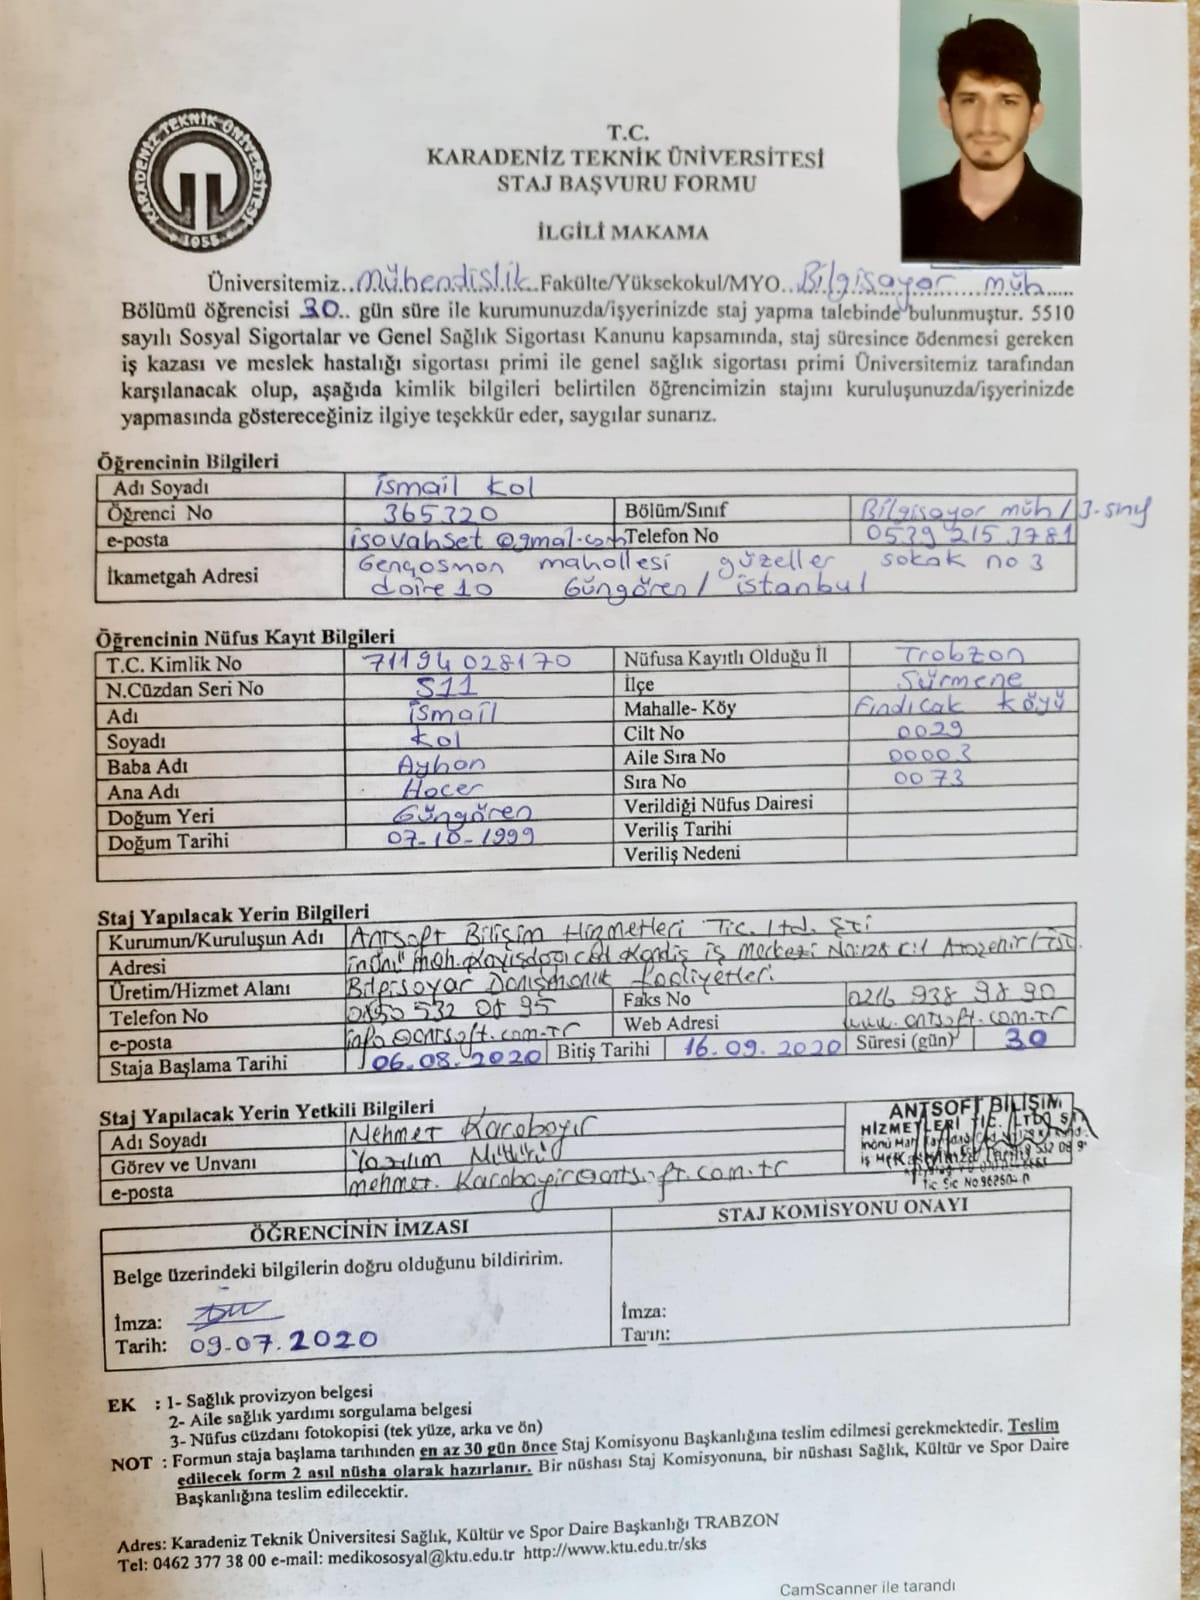 KARADENİZ TEKNİK ÜNİVERSİTESİ
1955
T.C.
KARADENİZ TEKNİK ÜNİVERSİTESİ
STAJ BAŞVURU FORMU
İLGİLİ MAKAMA
Üniversitemiz..Mühendislik..Fakülte/Yüksekokul/MYO..Bilgisayar müh.....
Bölümü öğrencisi 30.. gün süre ile kurumunuzda/işyerinizde staj yapma talebinde bulunmuştur. 5510
sayılı Sosyal Sigortalar ve Genel Sağlık Sigortası Kanunu kapsamında, staj süresince ödenmesi gereken
iş kazası ve meslek hastalığı sigortası primi ile genel sağlık sigortası primi Üniversitemiz tarafından
karşılanacak olup, aşağıda kimlik bilgileri belirtilen öğrencimizin stajını kuruluşunuzda/işyerinizde
yapmasında göstereceğiniz ilgiye teşekkür eder, saygılar sunarız.
Öğrencinin Bilgileri
Adı Soyadı ismail kol
Öğrenci No 365320 Bölüm/Sınıf Bilgisayar müh / 3-sınıf
e-posta isovahset @gmal.com Telefon No 0539 215 3781
İkametgah Adresi Gençosman mahallesi güzeller sokak no 3
daire 10 Güngören / istanbul
Öğrencinin Nüfus Kayıt Bilgileri
T.C. Kimlik No 71194028170 Nüfusa Kayıtlı Olduğu İl Trabzon
N.Cüzdan Seri No S11 İlçe Sürmene
Adı ismail Mahalle- Köy Fındıcak köyü
Soyadı kol Cilt No 0029
Baba Adı Ayhan Aile Sıra No 00003
Ana Adı Hacer Sıra No 0073
Doğum Yeri Güngören Verildiği Nüfus Dairesi
Doğum Tarihi 07-10-1999 Veriliş Tarihi
Veriliş Nedeni
Staj Yapılacak Yerin Bilgileri
Kurumun/Kuruluşun Adı Antsoft Bilişim Hizmetleri Tic. Ltd. ŞTi
Adresi inönü mah. Kayışdağı cad Kardiş iş Merkezi No:128 Ataşehir / ist.
Üretim/Hizmet Alanı Bilgisayar Danışmanlık Faaliyetleri
Telefon No 0850 532 08 95 Faks No 0216 938 98 90
e-posta info@antsoft.com.tr Web Adresi www.antsoft.com.tr
Staja Başlama Tarihi 06.08.2020 Bitiş Tarihi 16.09.2020 Süresi (gün) 30
Staj Yapılacak Yerin Yetkili Bilgileri
Adı Soyadı Mehmet Karabayır
Görev ve Unvanı Yazılım Müdürü
e-posta mehmet.karabayir@antsoft.com.tr
ANTSOFT BİLİŞİM
HİZMETLERİ TİC. LTD. ŞTİ.
ÖĞRENCİNİN İMZASI STAJ KOMİSYONU ONAYI
Belge üzerindeki bilgilerin doğru olduğunu bildiririm.
İmza: İmza:
Tarih: 09.07.2020 Tarih:
EK : 1- Sağlık provizyon belgesi
2- Aile sağlık yardımı sorgulama belgesi
3- Nüfus cüzdanı fotokopisi (tek yüze, arka ve ön)
NOT : Formun staja başlama tarihinden en az 30 gün önce Staj Komisyonu Başkanlığına teslim edilmesi gerekmektedir. Teslim
edilecek form 2 asıl nüsha olarak hazırlanır. Bir nüshası Staj Komisyonuna, bir nüshası Sağlık, Kültür ve Spor Daire
Başkanlığına teslim edilecektir.
Adres: Karadeniz Teknik Üniversitesi Sağlık, Kültür ve Spor Daire Başkanlığı TRABZON
Tel: 0462 377 38 00 e-mail: medikososyal@ktu.edu.tr http://www.ktu.edu.tr/sks
CamScanner ile tarandı